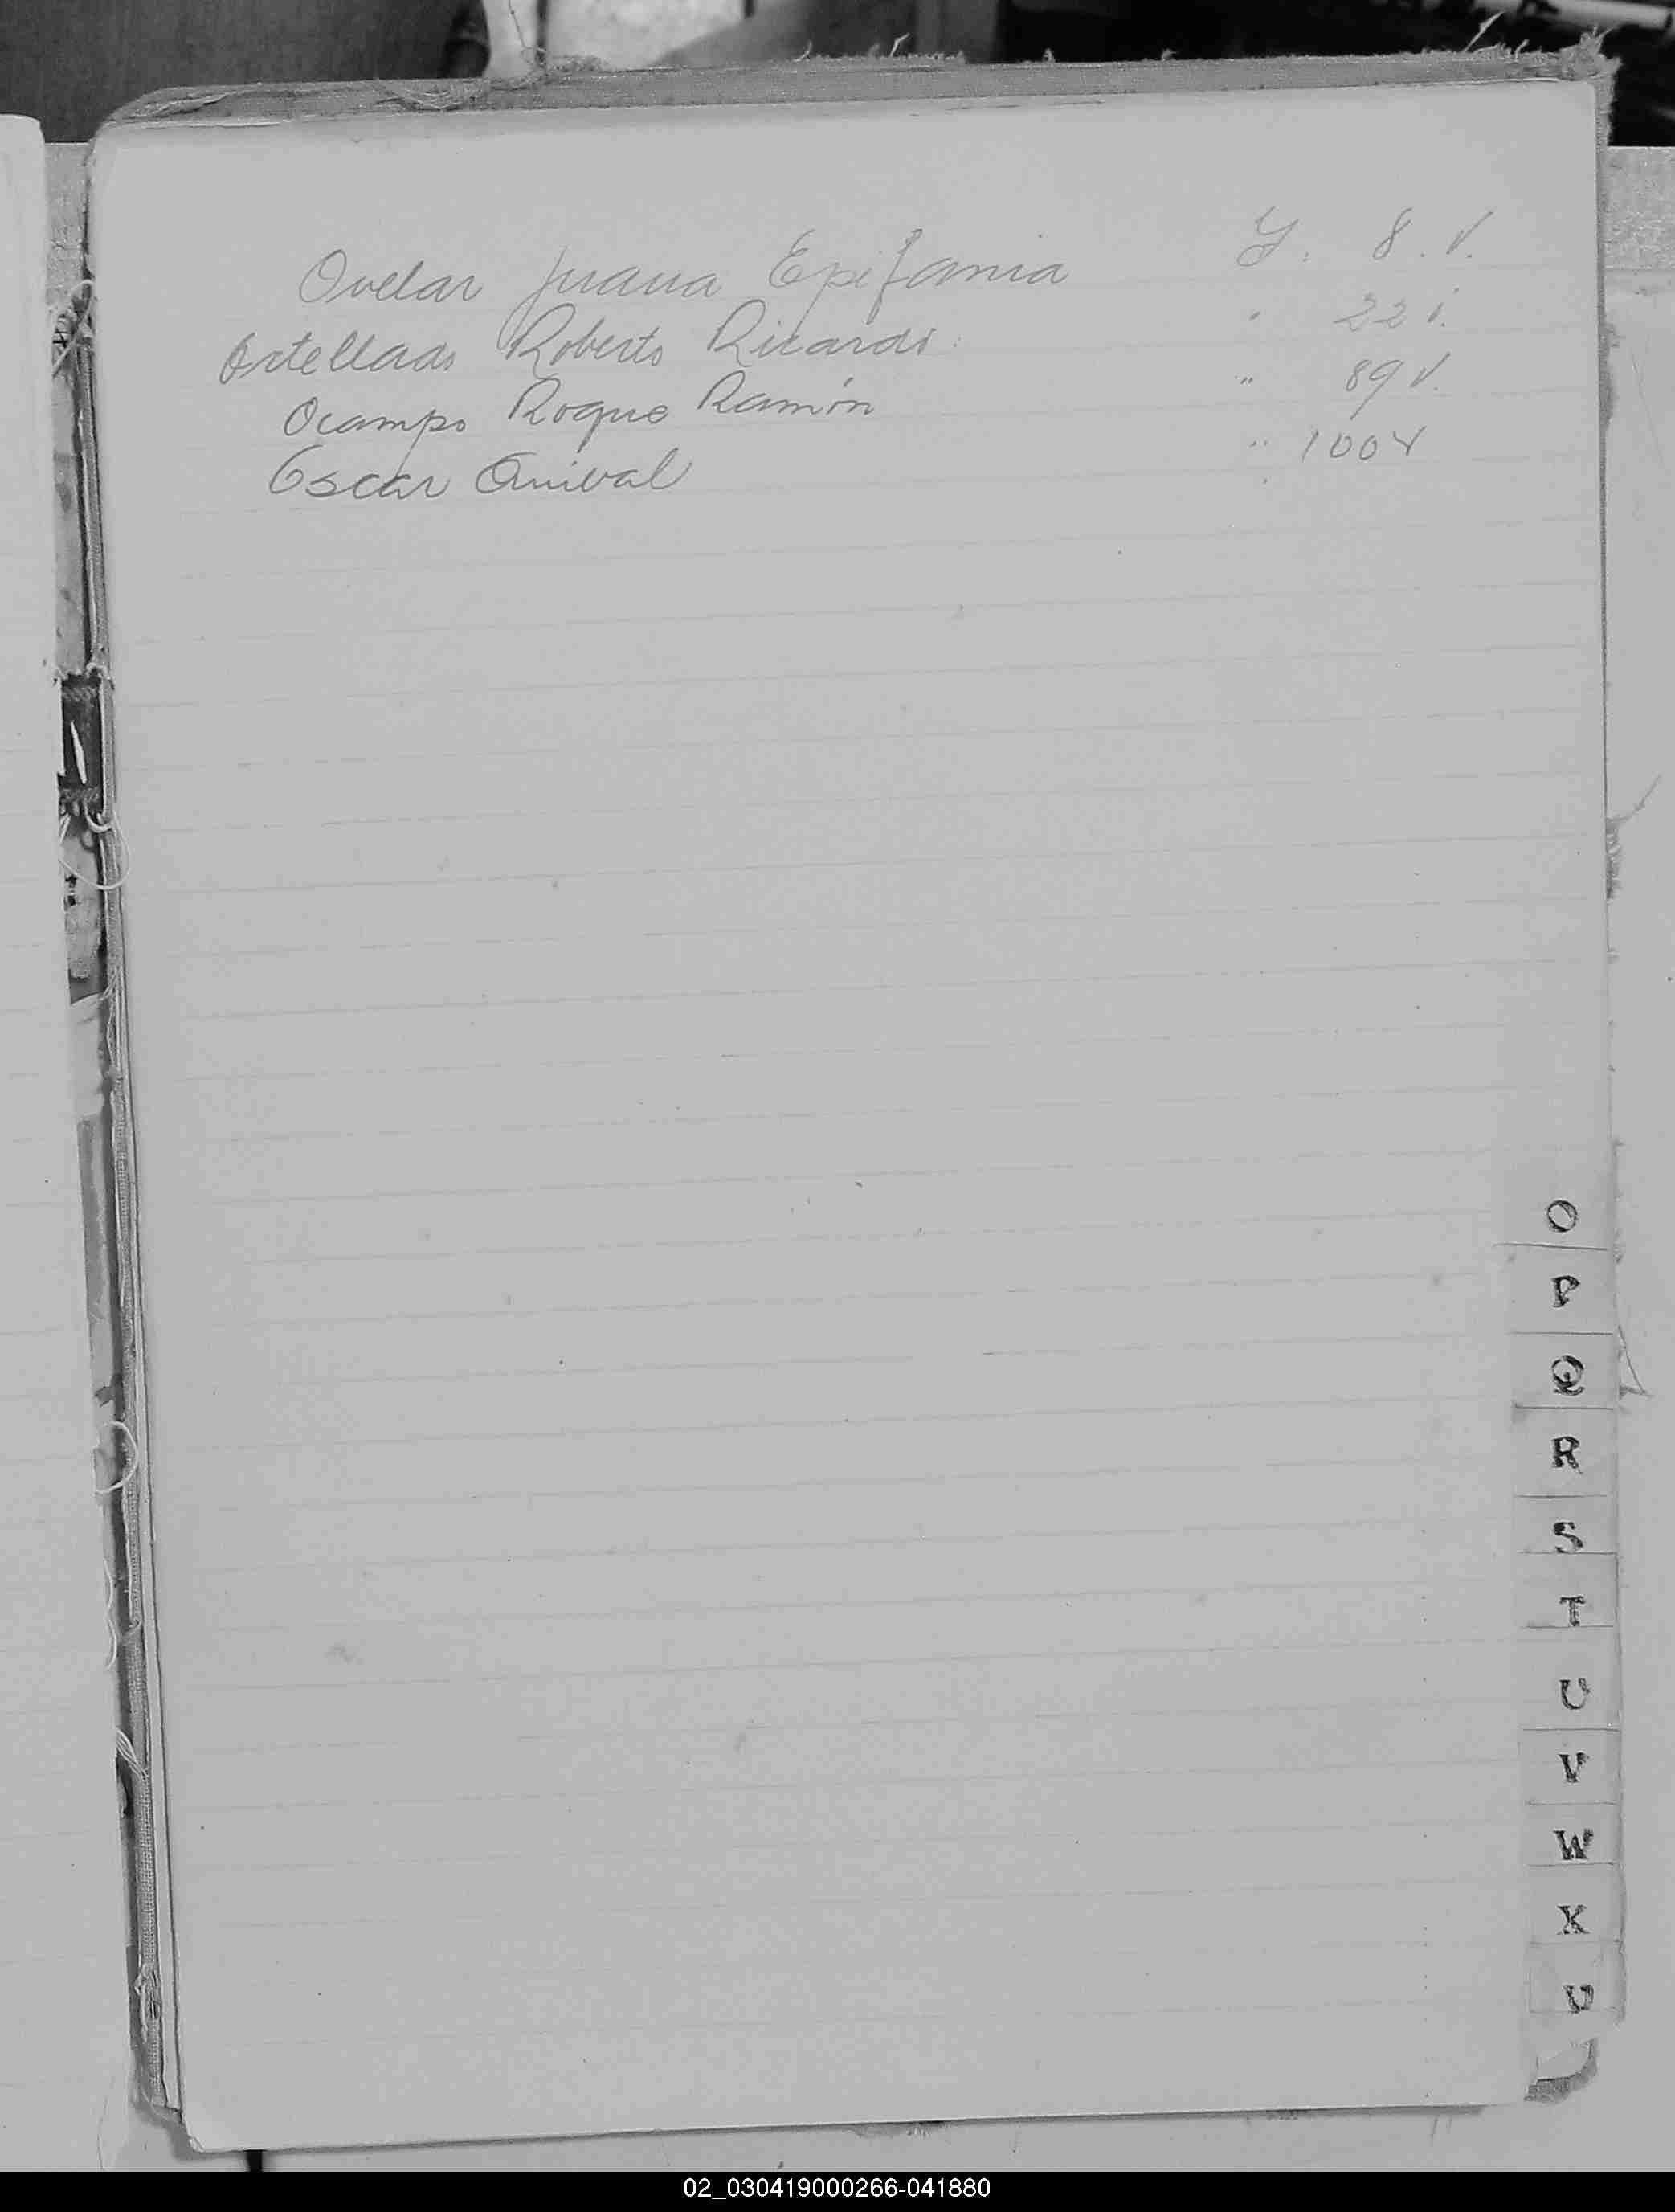 Ovelar Juana Epifania Y. 8. V.
Ortellado Roberto Ricardo " 22 V.
Ocampo Roque Ramón " 89 V.
Oscar Anival " 100 V
O
P
Q
R
S
T
U
V
W
X
02_030419000266-041880